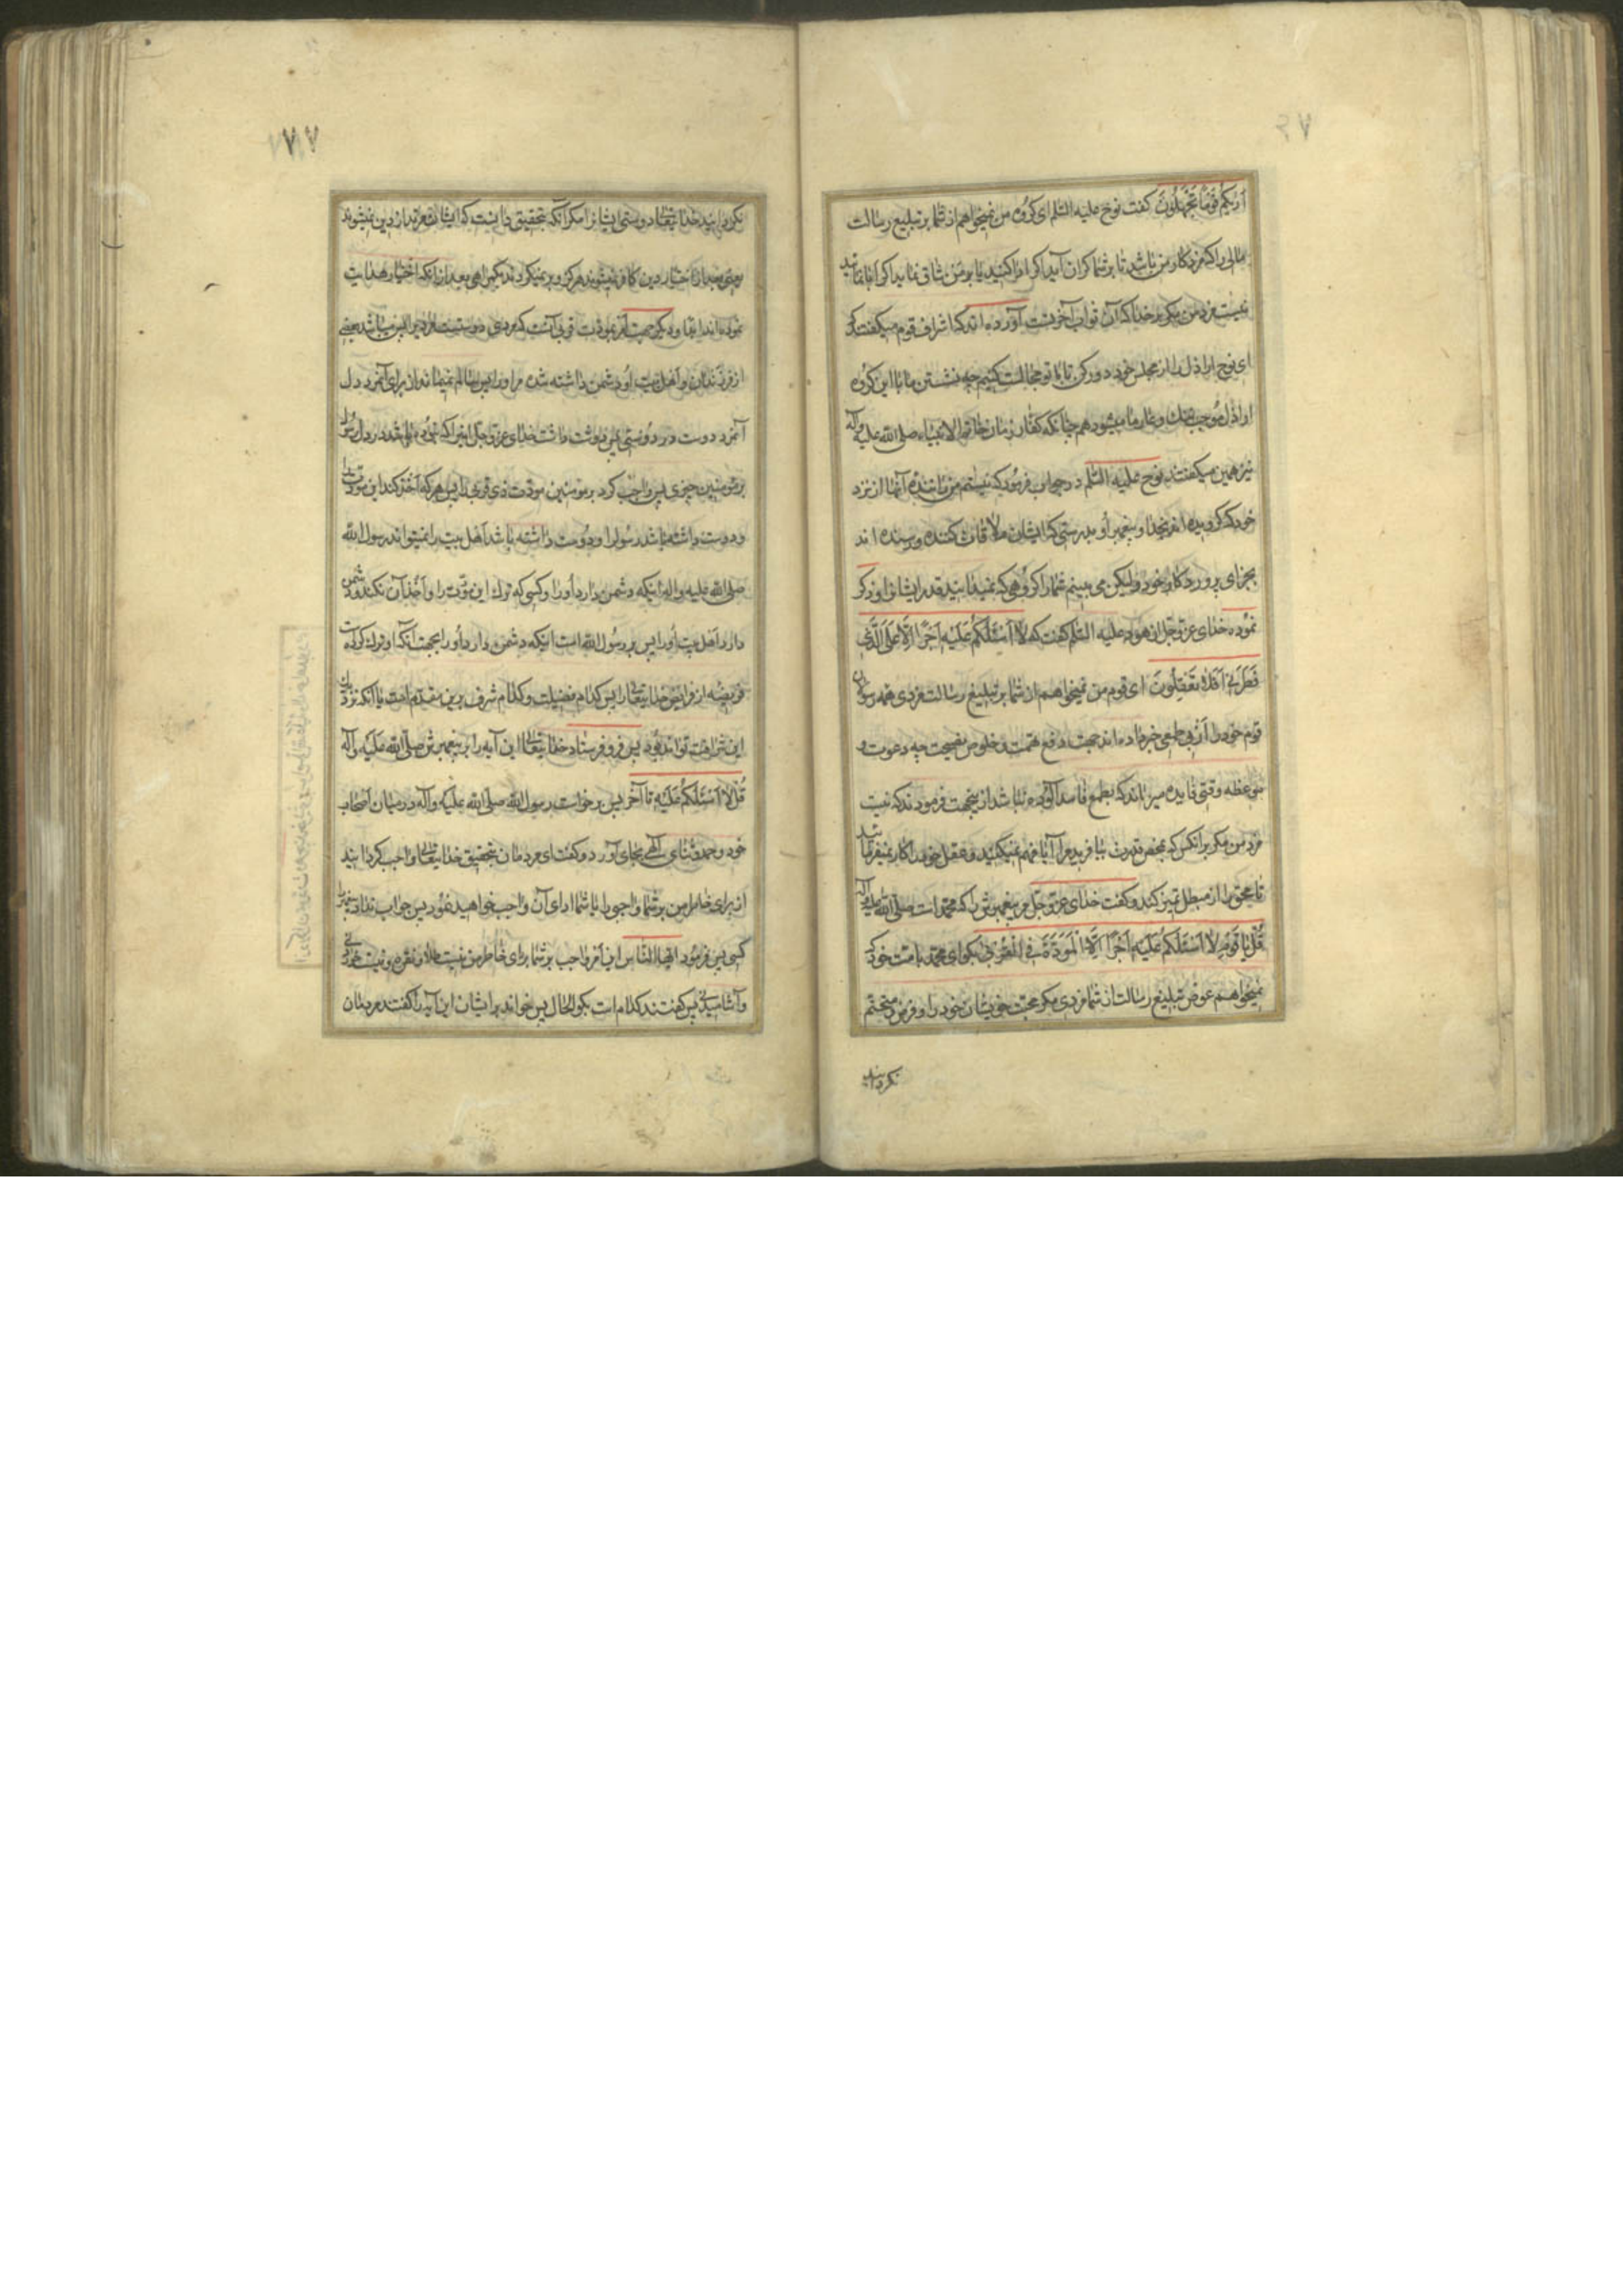 اَریکُم قَوْمًا تَجْهَلُونَ گفت نوح علیه السّلم ای گروه من نمیخواهم از شما بر تبلیغ رسالت
مالی را که مزد کار من باشد تا بر شما گران آید اگر ادا کنید یا بر من شاق نماید اگر ابا نمائید
نیست مزد من مگر بر خدا که آن ثواب آخرتست آورده اند که اشراف قوم میگفتند که
ای نوح اراذل را از مجلس خود دور کن تا با تو مجالست کنیم چه نشستن ما با این گروه
اراذل موجب ننک و عار ما میشود همچنانکه کفار زمان خاتم الانبیاء صلی الله علیه و آله
نیز همین میگفتند نوح علیه السّلم در جواب فرمود که نیستم من راننده آنها از نزد
خود که گرویده اند بخدا و پیغمبر او بدرستی که ایشان ملاقات کننده و رسنده اند
بجزای پروردکار خود ولیکن می بینم شما را گروهی که نمیدانید قدر ایشانرا و ذکر
نموده خدای عزّ و جلّ از هود علیه السّلم گفت که لا اَسْئَلُکُم عَلَیْهِ اَجْرًا اِلّا عَلَی الَّذی
فَطَرَنی اَفَلا تَعْقِلُونَ ای قوم من نمیخواهم از شما بر تبلیغ رسالت مزدی همه رسولان
قوم خود را از بی طمعی خبر داده اند جهت دفع تهمت و خلوص نصیحت چه دعوت و
موعظه وقتی فایده میرساند که بطمع فاسد آلوده نباشد ازینجهت فرمودند که نیست
مزد من مگر بر آنکس که بمحض قدرت بیافرید مرا آیا فهم نمیکنید و عقل خود را کار نمیفرمائید
تا محق را از مبطل تمیز کند و گفت خدای عزّ و جلّ مر پیغمبرش را که محمد است صلی الله علیه و آله
قُلْ یا قَوْمِ لا اَسْئَلُکُم عَلَیْهِ اَجْرًا اِلَّا الْمَوَدَّةَ فِی الْقُرْبی بگو ای محمد با امت خود که
نمیخواهم عوض تبلیغ رسالت از شما مزدی مگر محبت خویشان خود را و فرض و متحتم
نگردانید
نگردانید خدایتعالی دوستی ایشانرا مگر آنکه بتحقیق دانست که ایشان مرتد از دین نمیشوند
یعنی بعد از اختیار دین کافر نمیشوند هرگز و بر نمیگردند بگمراهی بعد از آنکه اختیار هدایت
نموده اند ابتدا و دیگر جهت امر بمودّت قربی آنست که مردی دوستیست مردیرا پس میباشد بعضی
از فرزندان و اهل بیت او دشمن داشته شده مر او را پس سالم نمیماند از برای آنمرد دل
آنمرد دوست در دوستی پس دوست داشت خدای عزّ و جلّ اینرا که نبوده باشد در دل رسول
بر مؤمنین چیزی پس واجب کرد بر مؤمنین مودّت ذی قربی را پس هر که اخذ کند این مودّت را
و دوست داشته باشد رسولرا و دوست داشته باشد اهل بیت را نمیتواند رسول الله
صلی الله علیه و آله اینکه دشمن دارد او را و کسی که ترک این مودّت را و اخذ آن نکند و دشمن
دارد اهل بیت او را پس بر رسول الله است اینکه دشمن دارد او را بجهت آنکه او ترک کرده است
فریضه از فرایض خدایتعالی را پس کدام فضیلت و کدام شرف برین مقدم است یا آنکه نزدیک
این تواند بود پس فرو فرستاد خدایتعالی این آیه را بر پیغمبرش صلّی الله علیه و آله
قُلْ لا اَسْئَلُکُمْ عَلَیْهِ تا آخر پس برخواست رسول الله صلی الله علیه و آله در میان اصحاب
خود و حمد و ثنای الهی بجای آورد و گفت ای مردمان بتحقیق خدایتعالی واجب گردانید
از برای خاطر من بر شما واجبی را آیا شما ادای آن واجب خواهید نمود پس جواب نداد پیغمبر را
کسی پس فرمود ایّها النّاس این امر واجب بر شما برای خاطر من نیست طلا و نقره و نیست خوردنی
و آشامیدنی پس گفتند کدام است بگو الحال پس خواند بر ایشان این آیه را گفتند مردمان